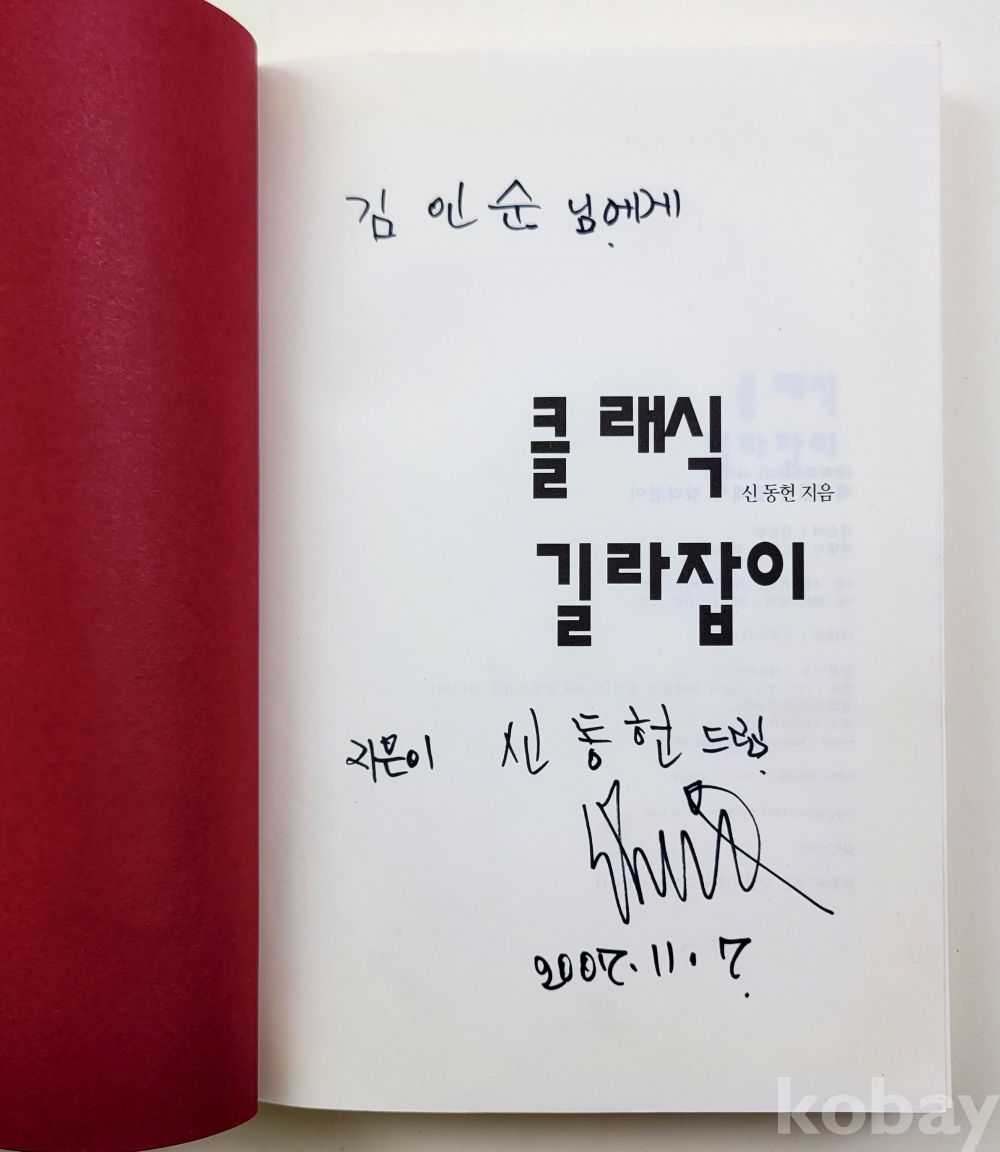 김 인 순 님에게.
클래식
신동헌 지음
길라잡이
지은이 신 동 헌 드림.
2007. 11. 7.
kobay